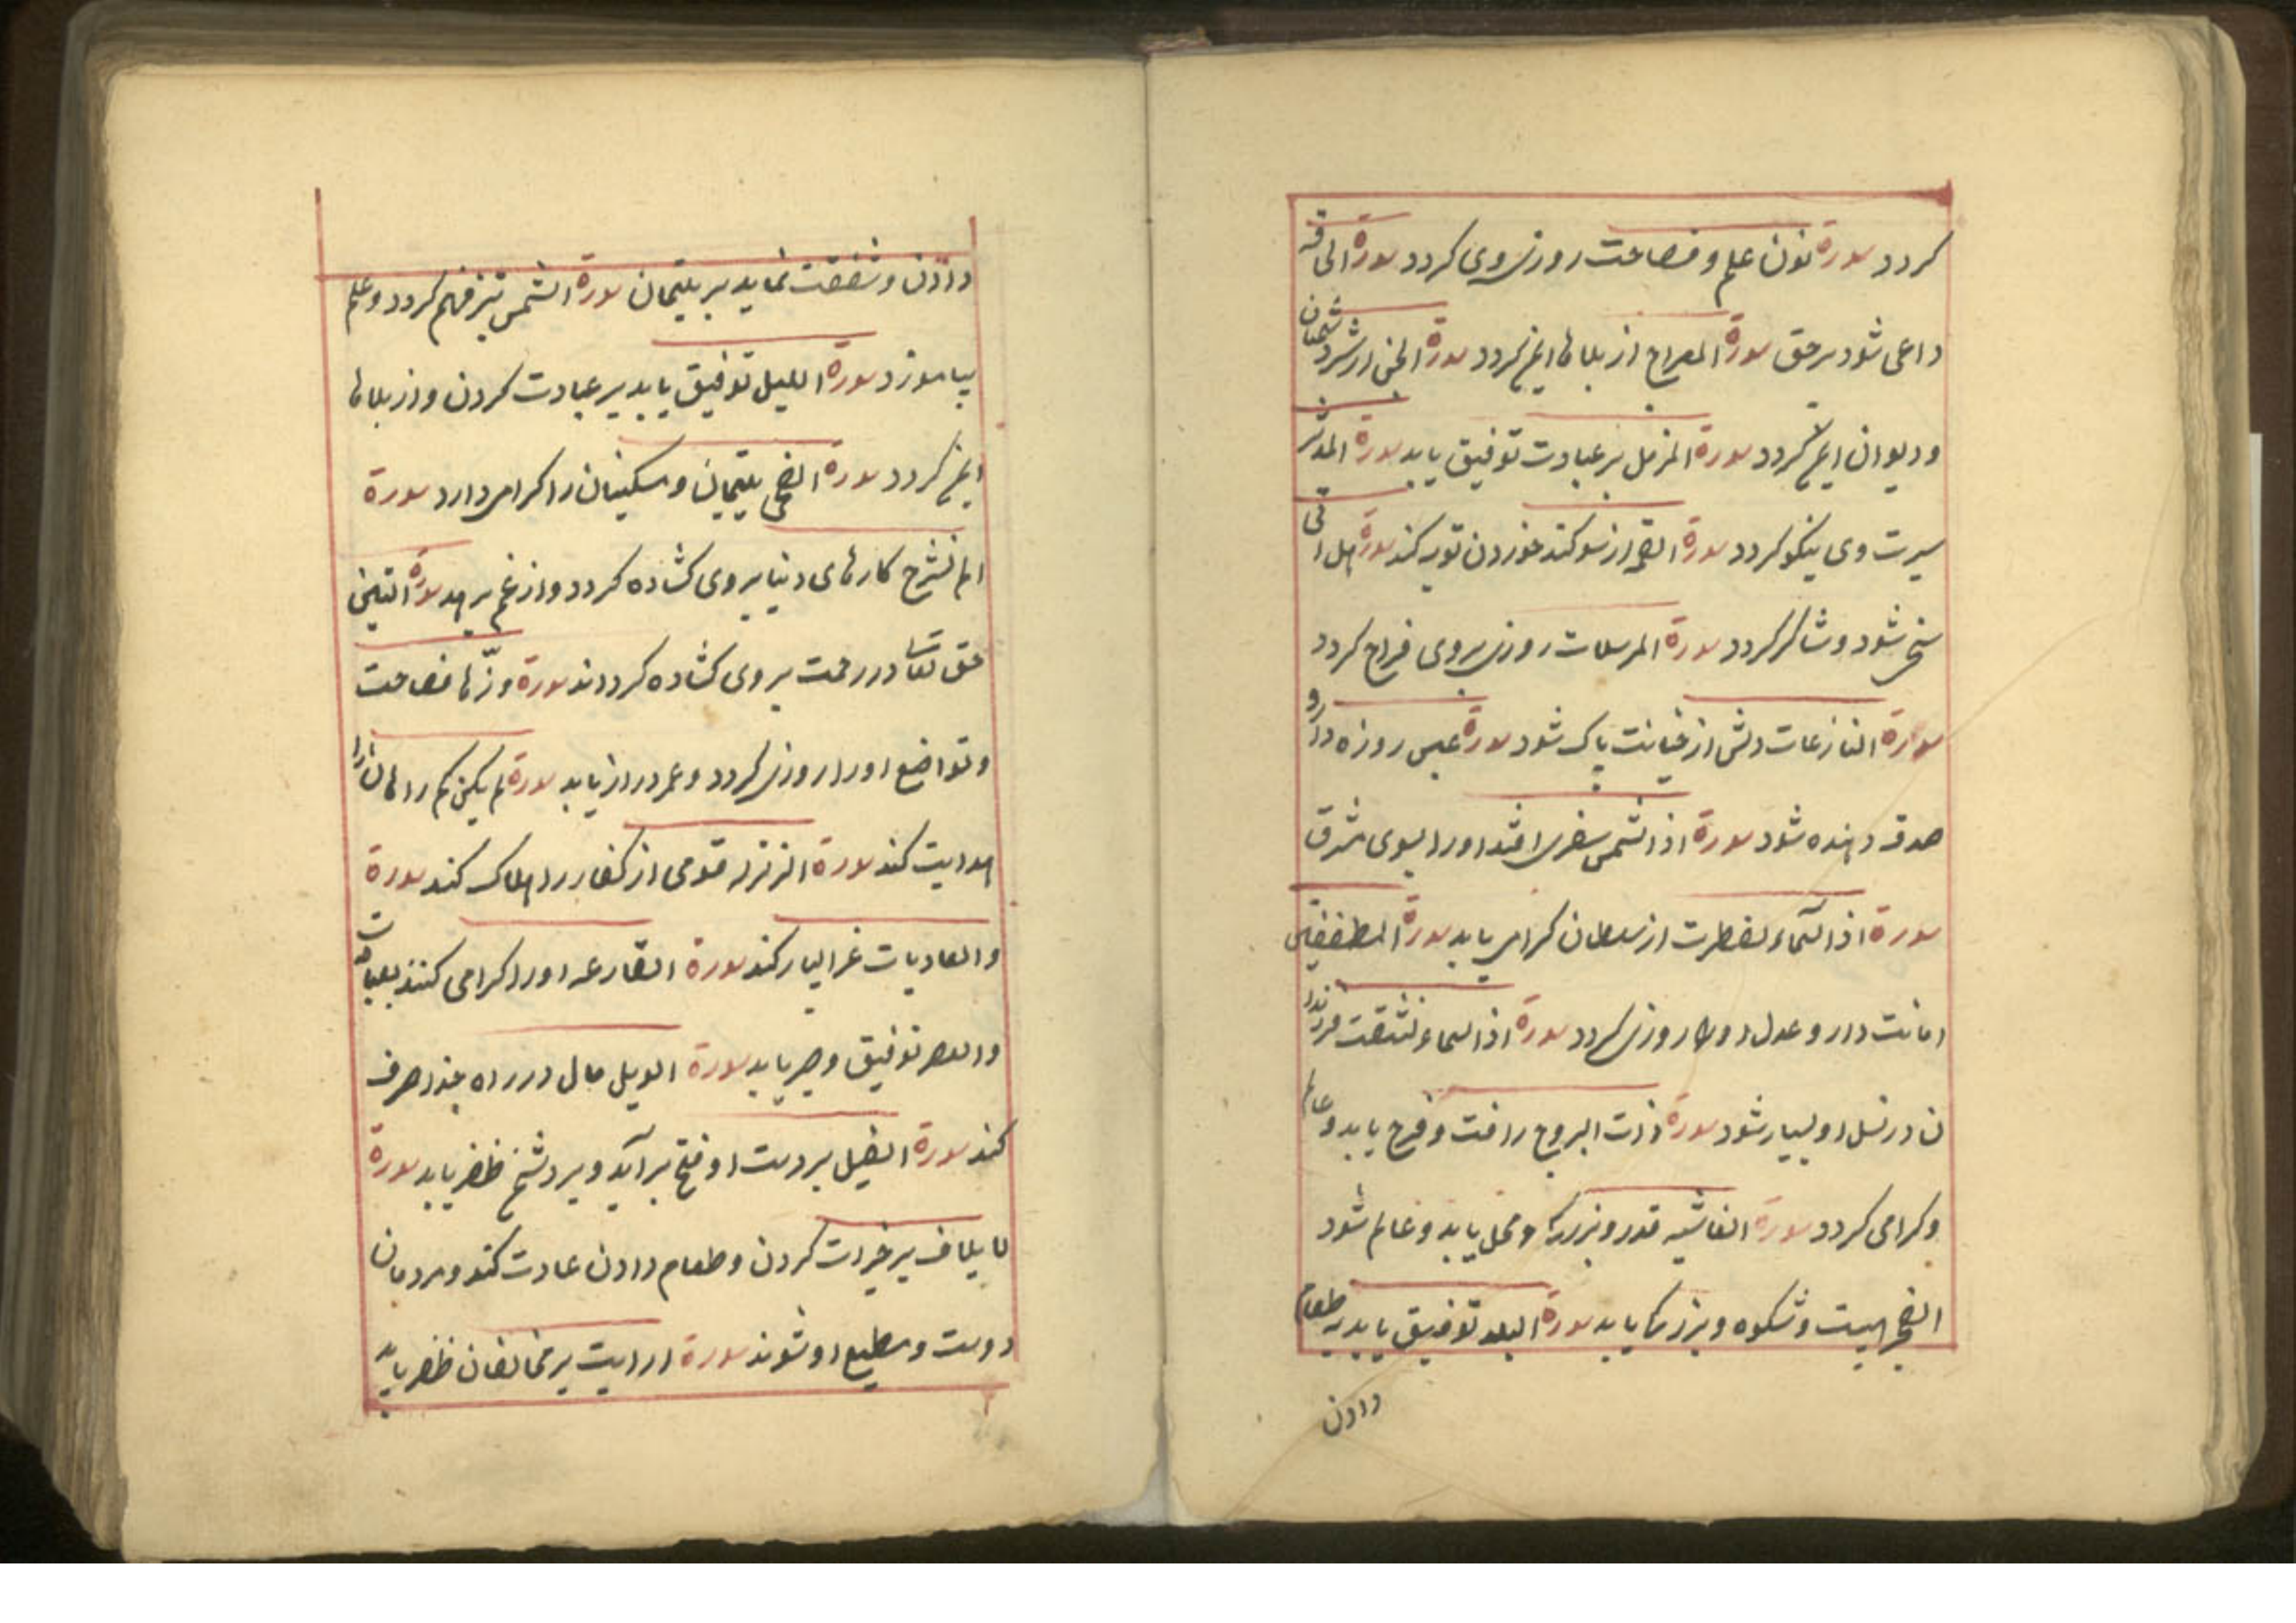 کردد سورة نون علم و فصاحت روزی وی کردد سورة الحاقه
داعی شود بر حق سورة المعراج از بلاها ایمن کردد سورة الجن از شر دشمنان
و دیوان ایمن کردد سورة المزمل بر عبادت توفیق یابد سورة المدثر
سیرت وی نیکو کردد سورة القیمه از سوکند خوردن توبه کند سورة هل اتی
سخی شود و شاکر کردد سورة المرسلات روزی بروی فراح کردد
سورة النازعات دلش از خیانت پاک شود سورة عبس روزه دار و
صدقه دهنده شود سورة اذا الشمس سفری افتد اورا بسوی مشرق
سورة اذا السماء انفطرت از سلطان کرامی یابد سورة المطففین
امانت دار و عدل اورا روزی کردد سورة اذا السماء انشقت فرزندا
ن در نسل او بسیار شود سورة ذات البروج رافت و فرح یابد و عالم
و کرامی کردد سورة الغاشیه قدر و بزرکی و محل یابد و عالم شود
الفجر هیبت و شکوه و بزرکی یابد سورة البلد توفیق یابد به طعام
دادن
دادن و شفقت نماید بر یتیمان سورة الشمس تیز فهم کردد و علم
بیاموزد سورة اللیل توفیق یابد بر عبادت کردن و از بلاها
ایمن کردد سورة الضحی یتیمان و مسکینان را کرامی دارد سورة
الم نشرح کارهای دنیا بروی کشاده کردد و از غم برهد سورة التین
حق تعا در رحمت بروی کشاده کرداند سورة فصاحت
و تواضع اورا روزی کردد و عمر دراز یابد سورة لم یکن
هدایت کند سورة الزلزله قومی از کفار را هلاک کند سورة
والعادیات غزا بسیار کند سورة القارعه اورا کرامی کنند بعبادت
والعصر توفیق و صبر یابد سورة الویل مال در راه خدا صرف
کند سورة الفیل بر دست او فتح برآید و بر دشمن ظفر یابد سورة
لایلاف بر خیرات کردن و طعام دادن عادت کند و مردمان
دوست و مطیع او شوند سورة ارایت بر مخالفان ظفر یابد